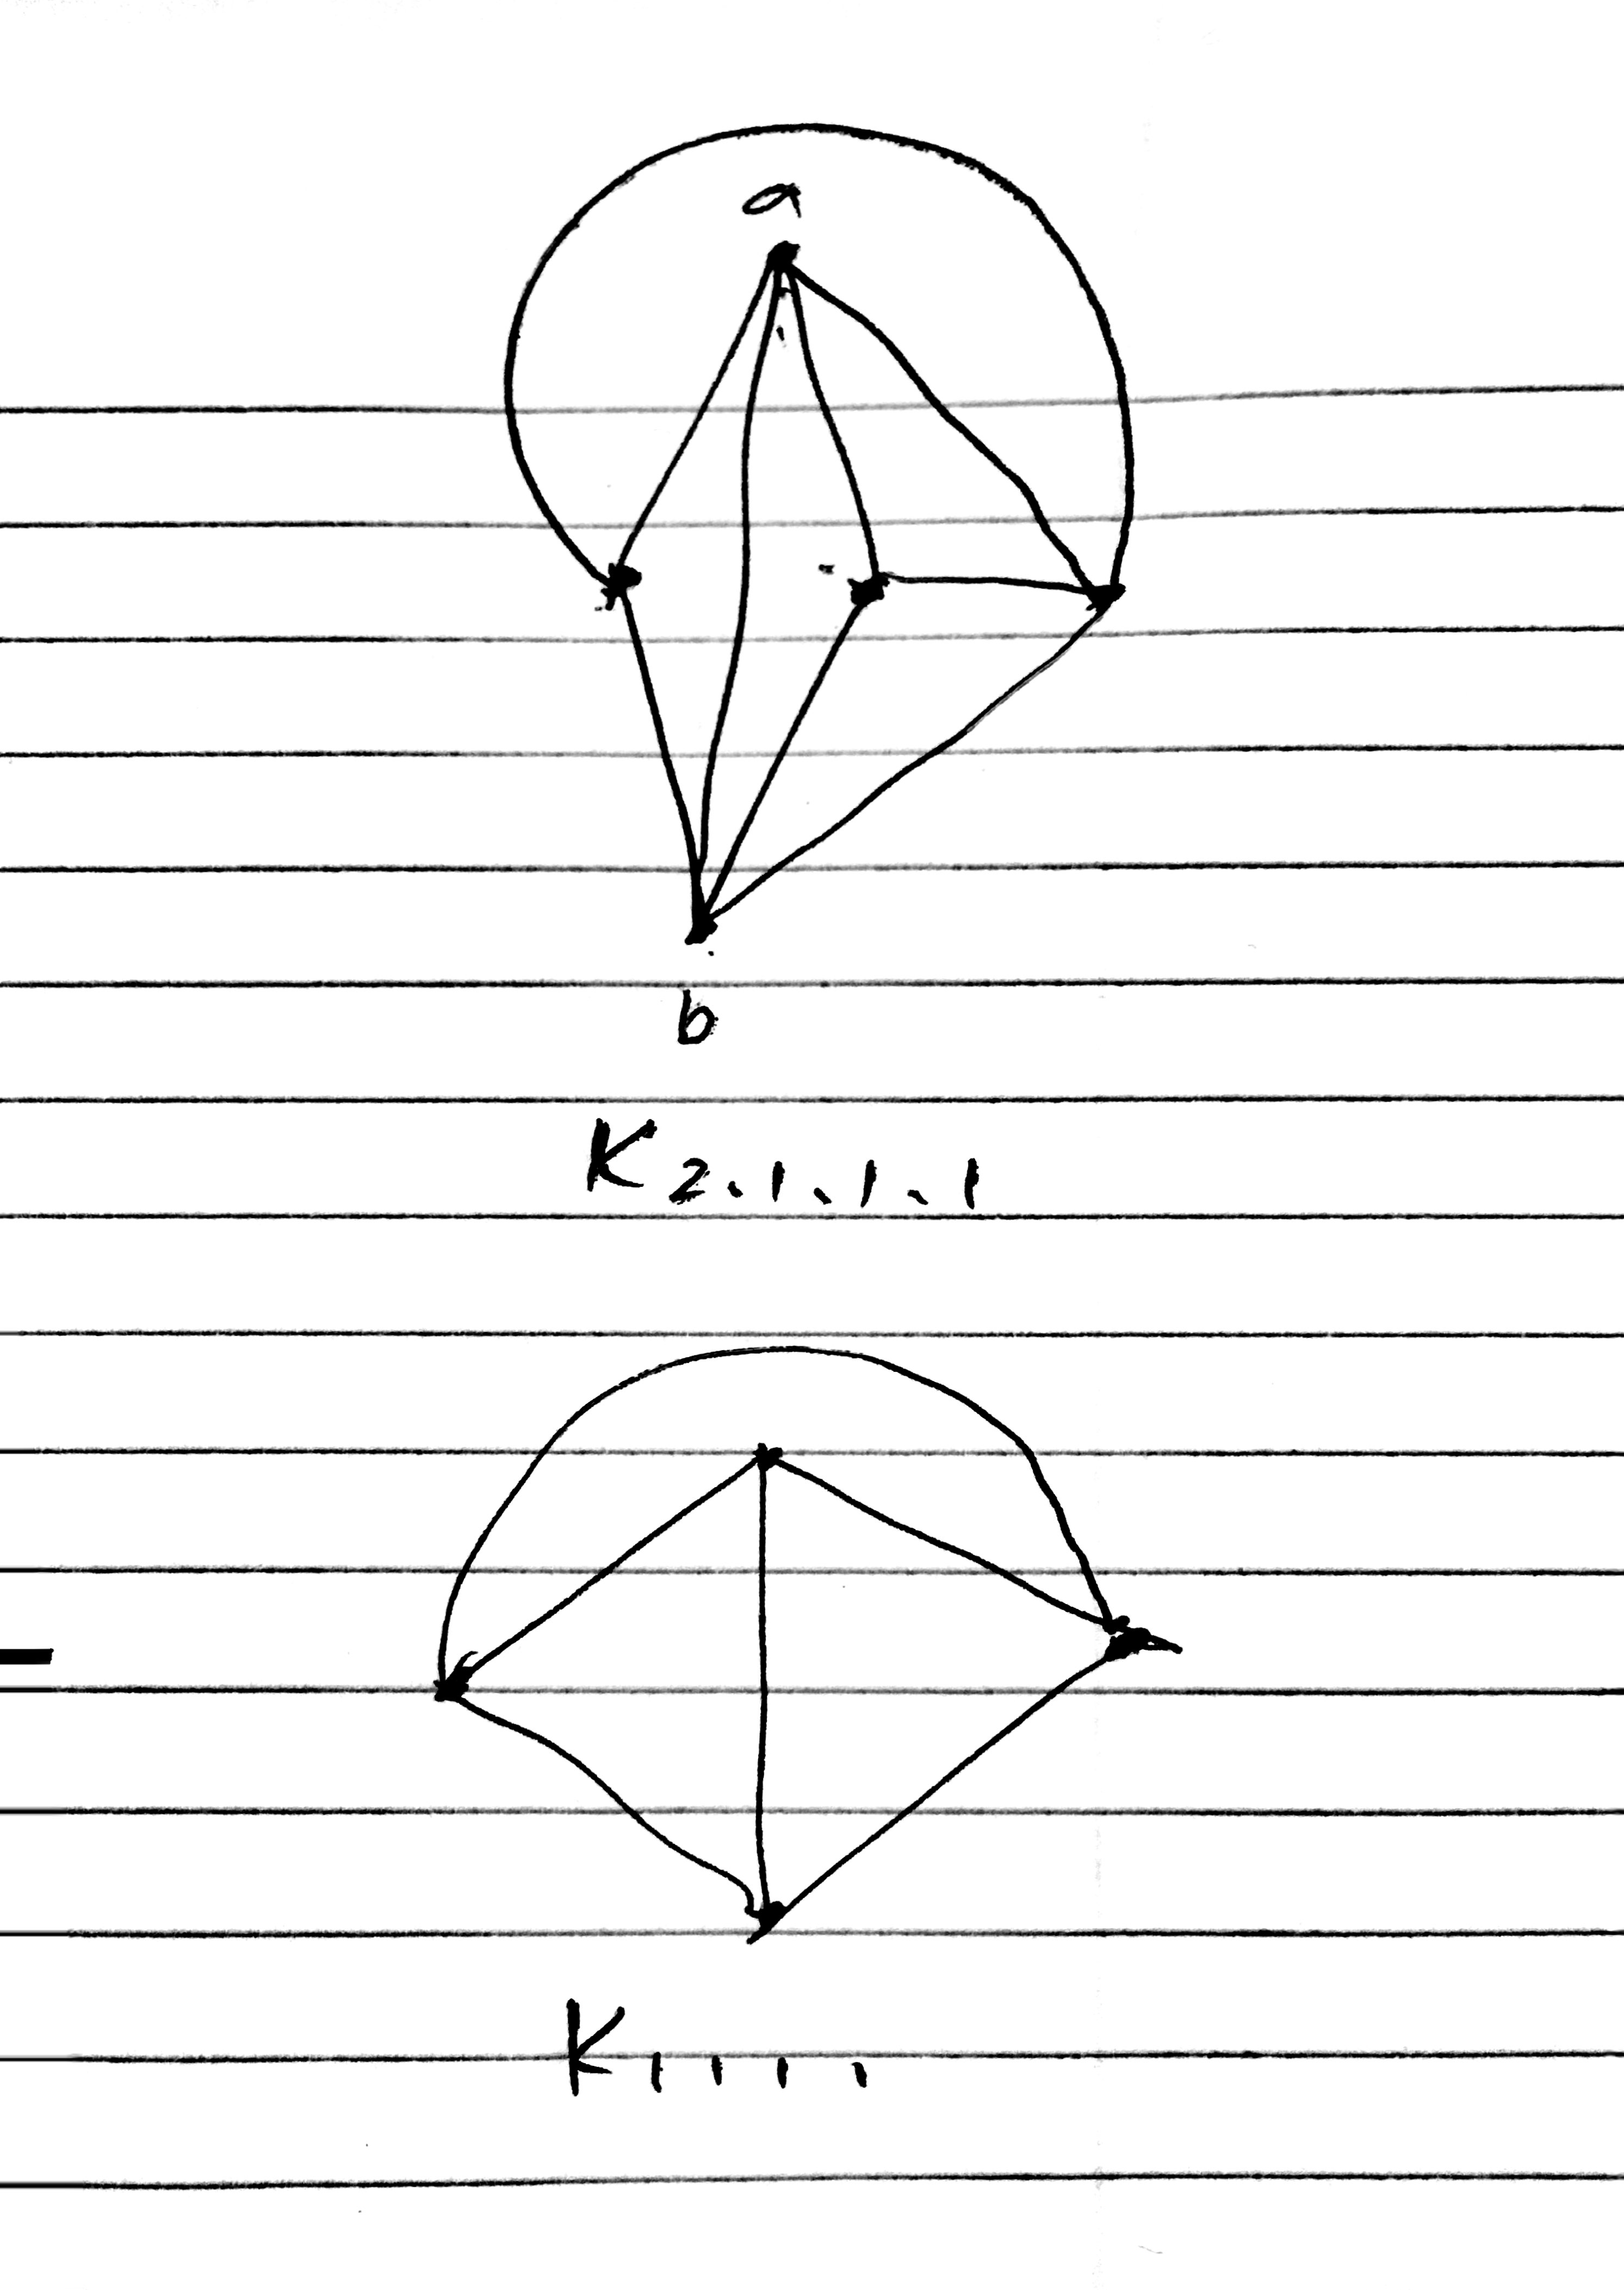 a
b
K 2,1,1,1
K 1 1 1 1